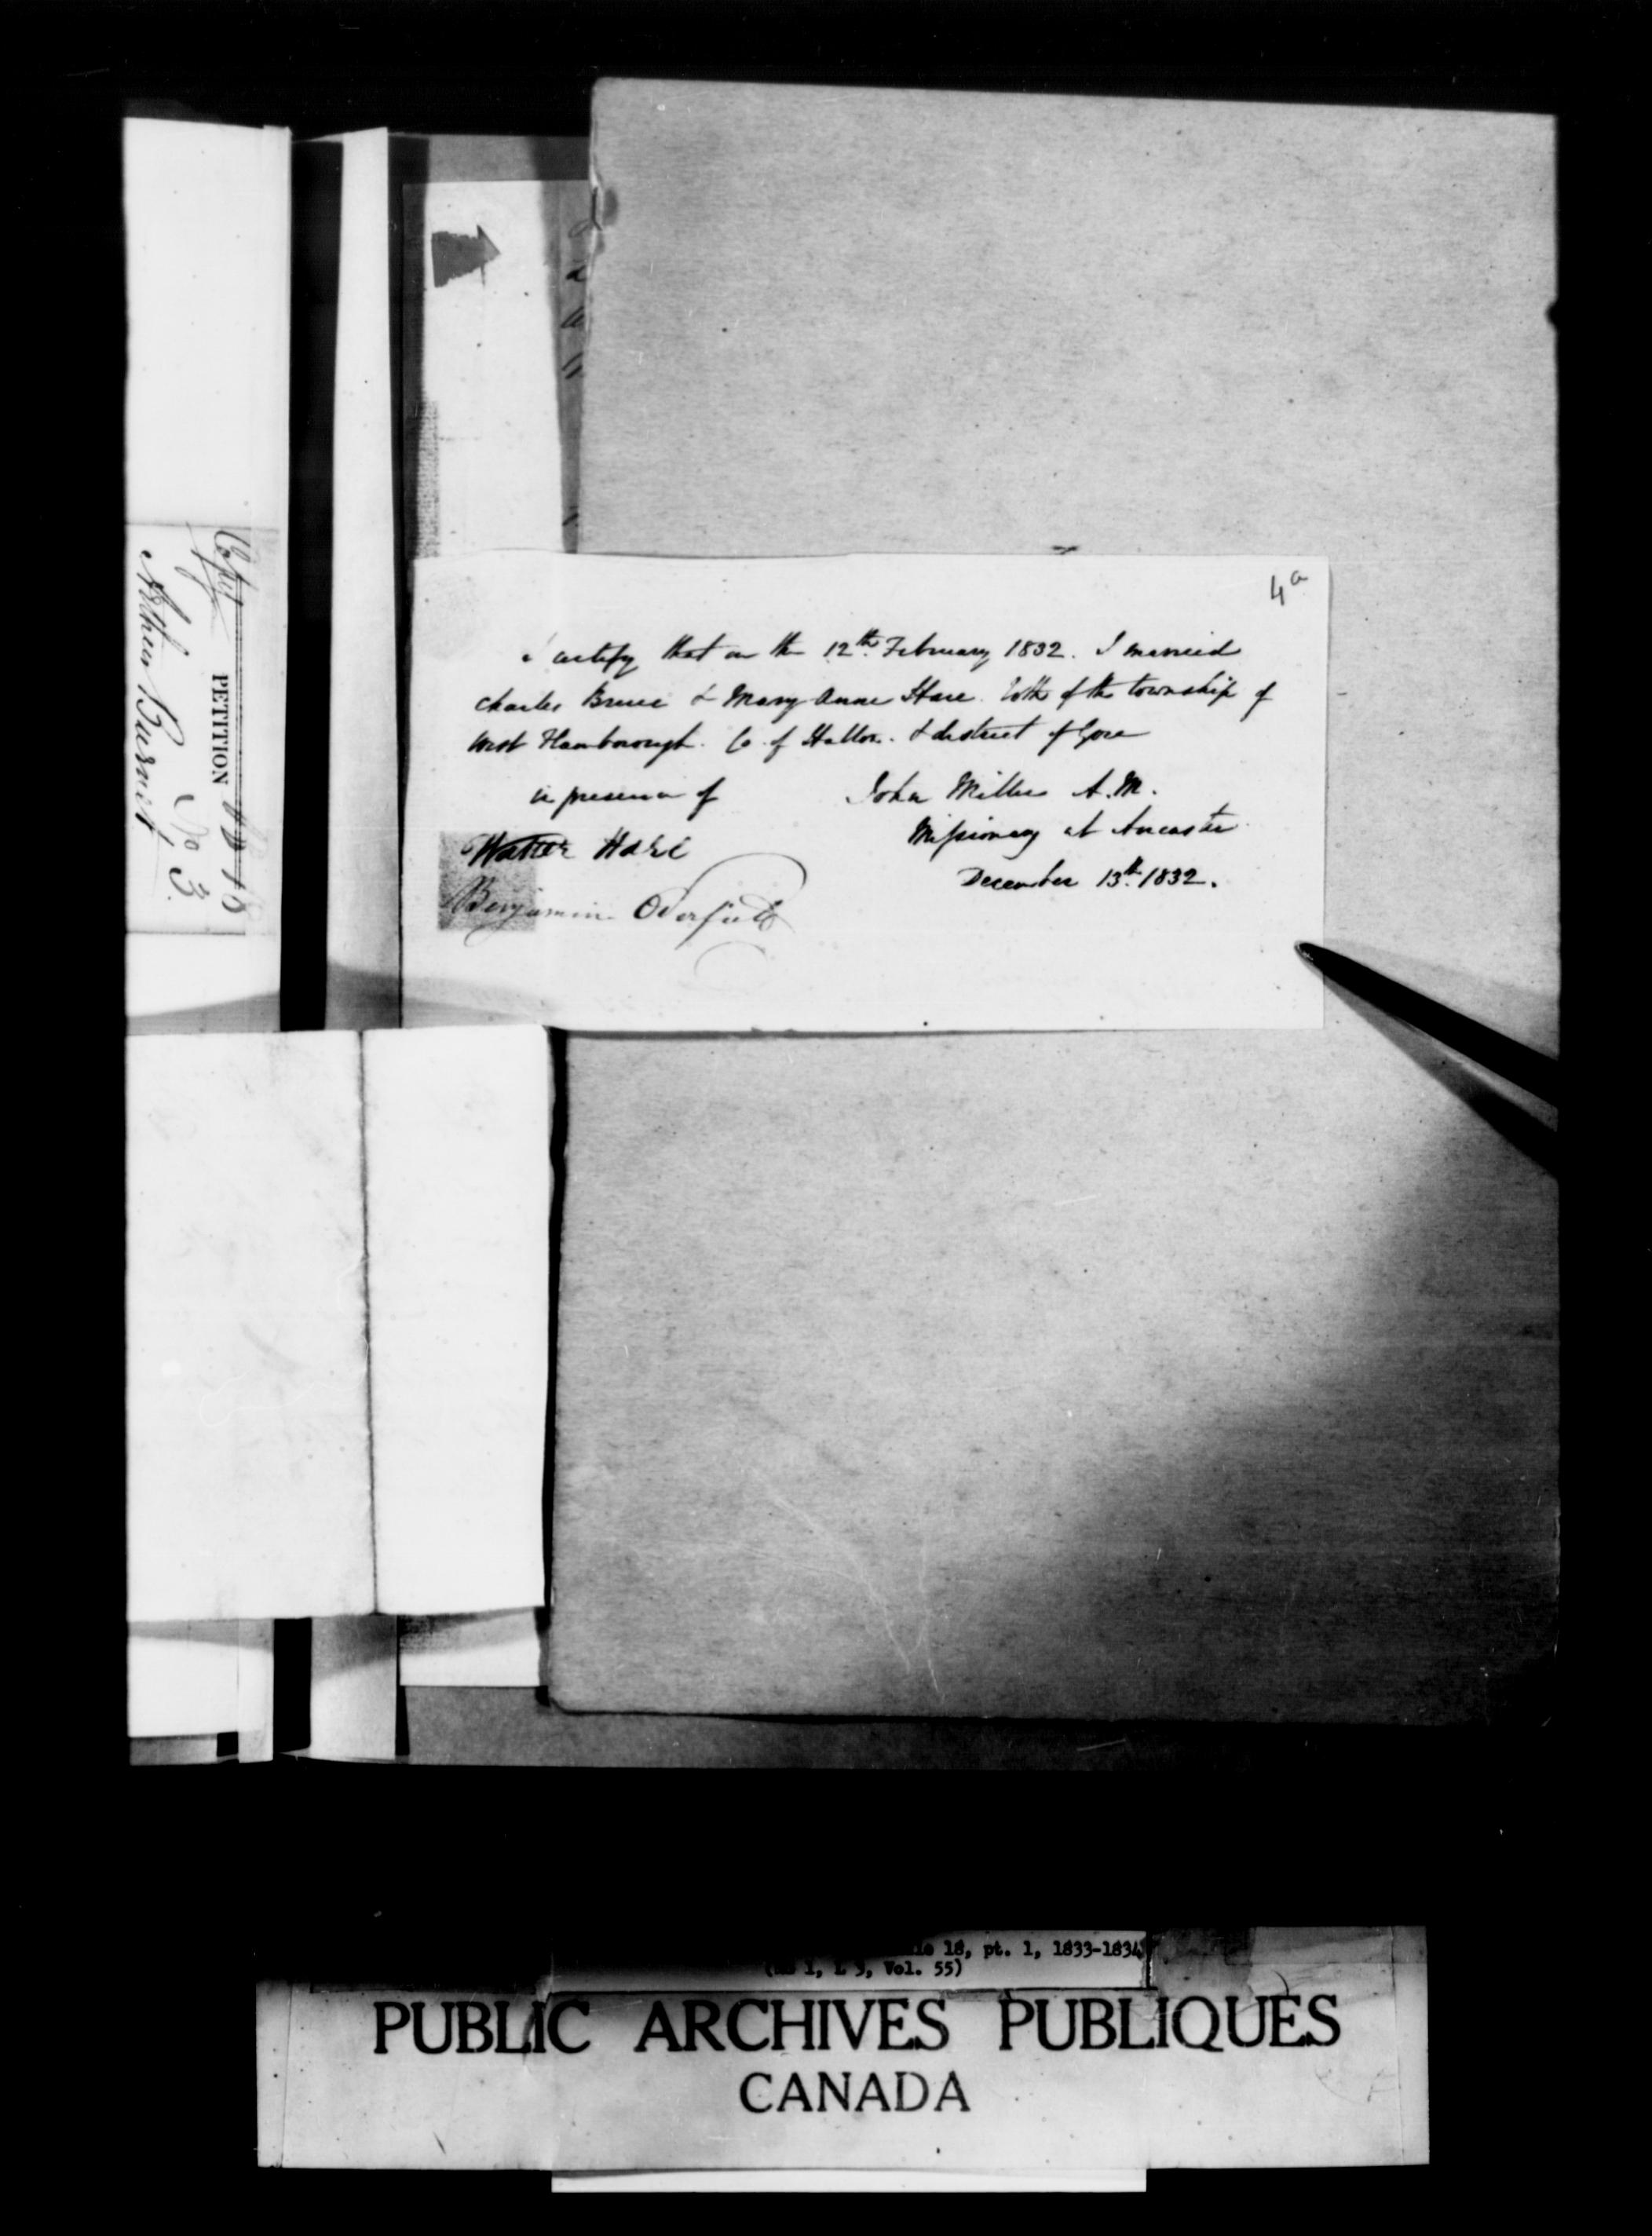 4a
I certify that on the 12th February 1832. I married
Charles Bruce & Mary Anne Hare both of the township of
West Flamborough. Co. of Halton. & district of Gore
in presence of
John Miller A.M.
Missionary at Ancaster
December 13th. 1832.
Walter Hare
Benjamin
Copy
PETITION
No 3
Arthur Burnet
18, pt. 1, 1833-1834
1, L 3, Vol. 55)
PUBLIC ARCHIVES PUBLIQUES
CANADA